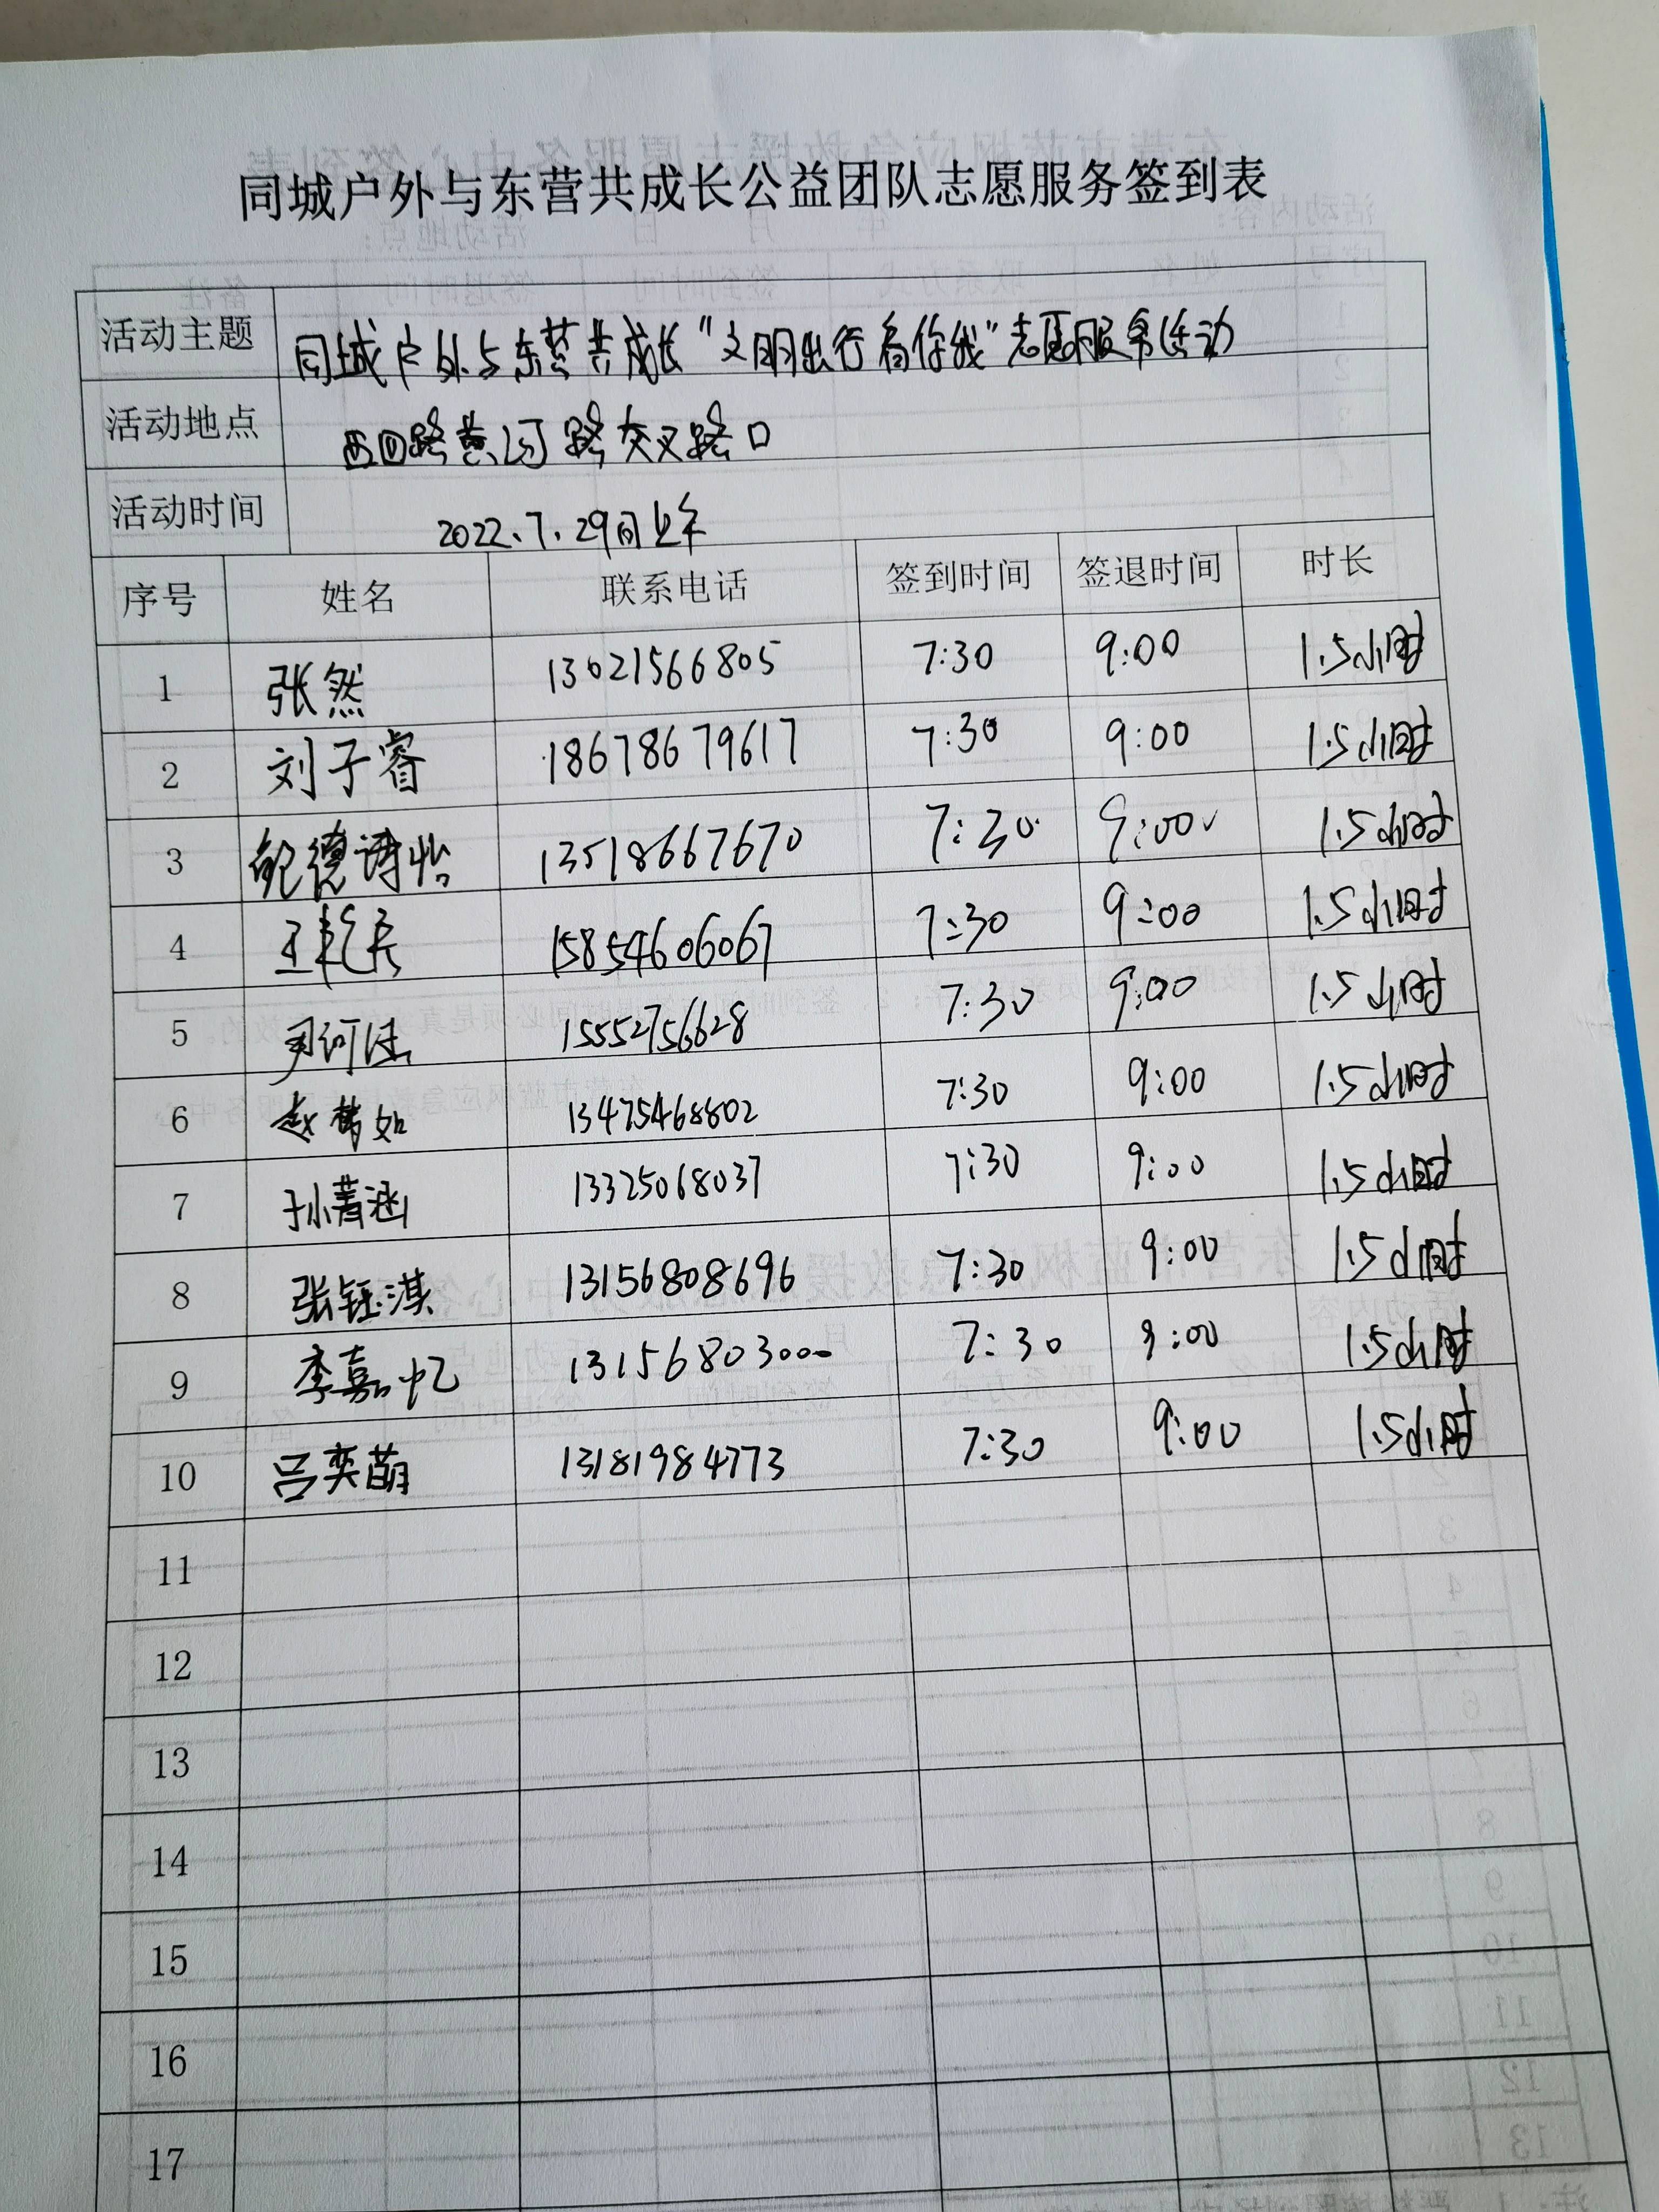 同城户外与东营共成长公益团队志愿服务签到表
活动主题 同城户外与东营共成长"文明出行有你我"志愿服务活动
活动地点 西四路黄河路交叉路口
活动时间 2022.7.29日上午
序号 姓名 联系电话 签到时间 签退时间 时长
1 张然 13021566805 7:30 9:00 1.5小时
2 刘子睿 18678679617 7:30 9:00 1.5小时
3 德诗怡 13518667670 7:30 9:00 1.5小时
4 15854606067 7:30 9:00 1.5小时
5 15552756628 7:30 9:00 1.5小时
6 赵梦如 13475468802 7:30 9:00 1.5小时
7 孙菁涵 13325068037 7:30 9:00 1.5小时
8 张钰淇 13156808696 7:30 9:00 1.5小时
9 李嘉忆 13156803000 7:30 9:00 1.5小时
10 吕奕萌 13181984773 7:30 9:00 1.5小时
11
12
13
14
15
16
17